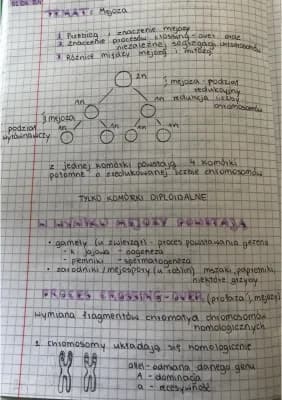 TEMAT: Mejoza
1. Przebieg i znaczenie mejozy
2. Znaczenie procesów crossing-over oraz
niezależnej segregacji chromosomów
3. Różnice między mejozą i mitozą
2n
I mejoza - podział
redukcyjny
1n
1n
redukcja liczby
chromosomów
II mejoza
podział
wyrównawczy
1n
1n
1n
1n
z jednej komórki powstają 4 komórki
potomne o zredukowanej liczbie chromosomów
TYLKO KOMÓRKI DIPLOIDALNE
W WYNIKU MEJOZY POWSTAJĄ
• gamety (u zwierząt) - proces powstawania
- k. jajowa - oogeneza
- plemniki - spermatogeneza
• zarodniki/mejospory (u roślin) mszaki, paprotniki,
niektóre grzyby
PROCES CROSSING-OVER (profaza I mejozy)
wymiana fragmentów chromatyd chromosomów
homologicznych
1. chromosomy układają się homologicznie
allel - odmiana danego genu
A - dominacja
a - recesywność